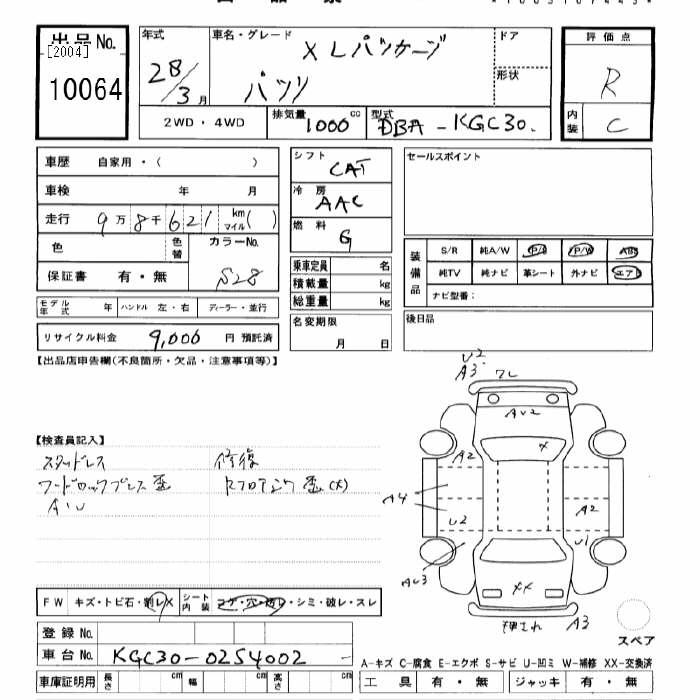 出品No. 年式 車名・グレード X Lパッケージ ドア 評価点
[2004]
10064 28/3月 パッソ 形状 R
2WD・4WD 排気量 1000 cc 型式 DBA-KGC30. 内装 C
車歴 自家用・( )
車検 年 月
走行 9万8千621 km マイル( )
色 色替 カラーNo.
保証書 有・無 S28
モデル年式 年 ハンドル 左・右 ディーラー・並行
リサイクル料金 9,000 円 預託済
シフト CAT
冷房 AAC
燃料 G
乗車定員 名
積載量 kg
総重量 kg
名変期限
月 日
セールスポイント
装備品 S/R 純A/W P/S P/W ABS
純TV 純ナビ 革シート 外ナビ エアB
ナビ型番:
後日品
【出品店申告欄(不良箇所・欠品・注意事項等)】
U2
A3
ワレ
AU2
A2 X
A4
U2 A2
U1
AU3
XX
押され A3
スペア
【検査員記入】
スタッドレス 修復
フードロックブレス歪 RフロアミゾP歪(大)
A・U
FW キズ・トビ石・割レX シート内装 コゲ・穴・切レ・シミ・破レ・スレ
登録No.
車台No. KGC30-0254002
車庫証明用 長さ cm 幅 cm 高さ cm
A-キズ C-腐食 E-エクボ S-サビ U-凹ミ W-補修 XX-交換済
工具 有・無 ジャッキ 有・無